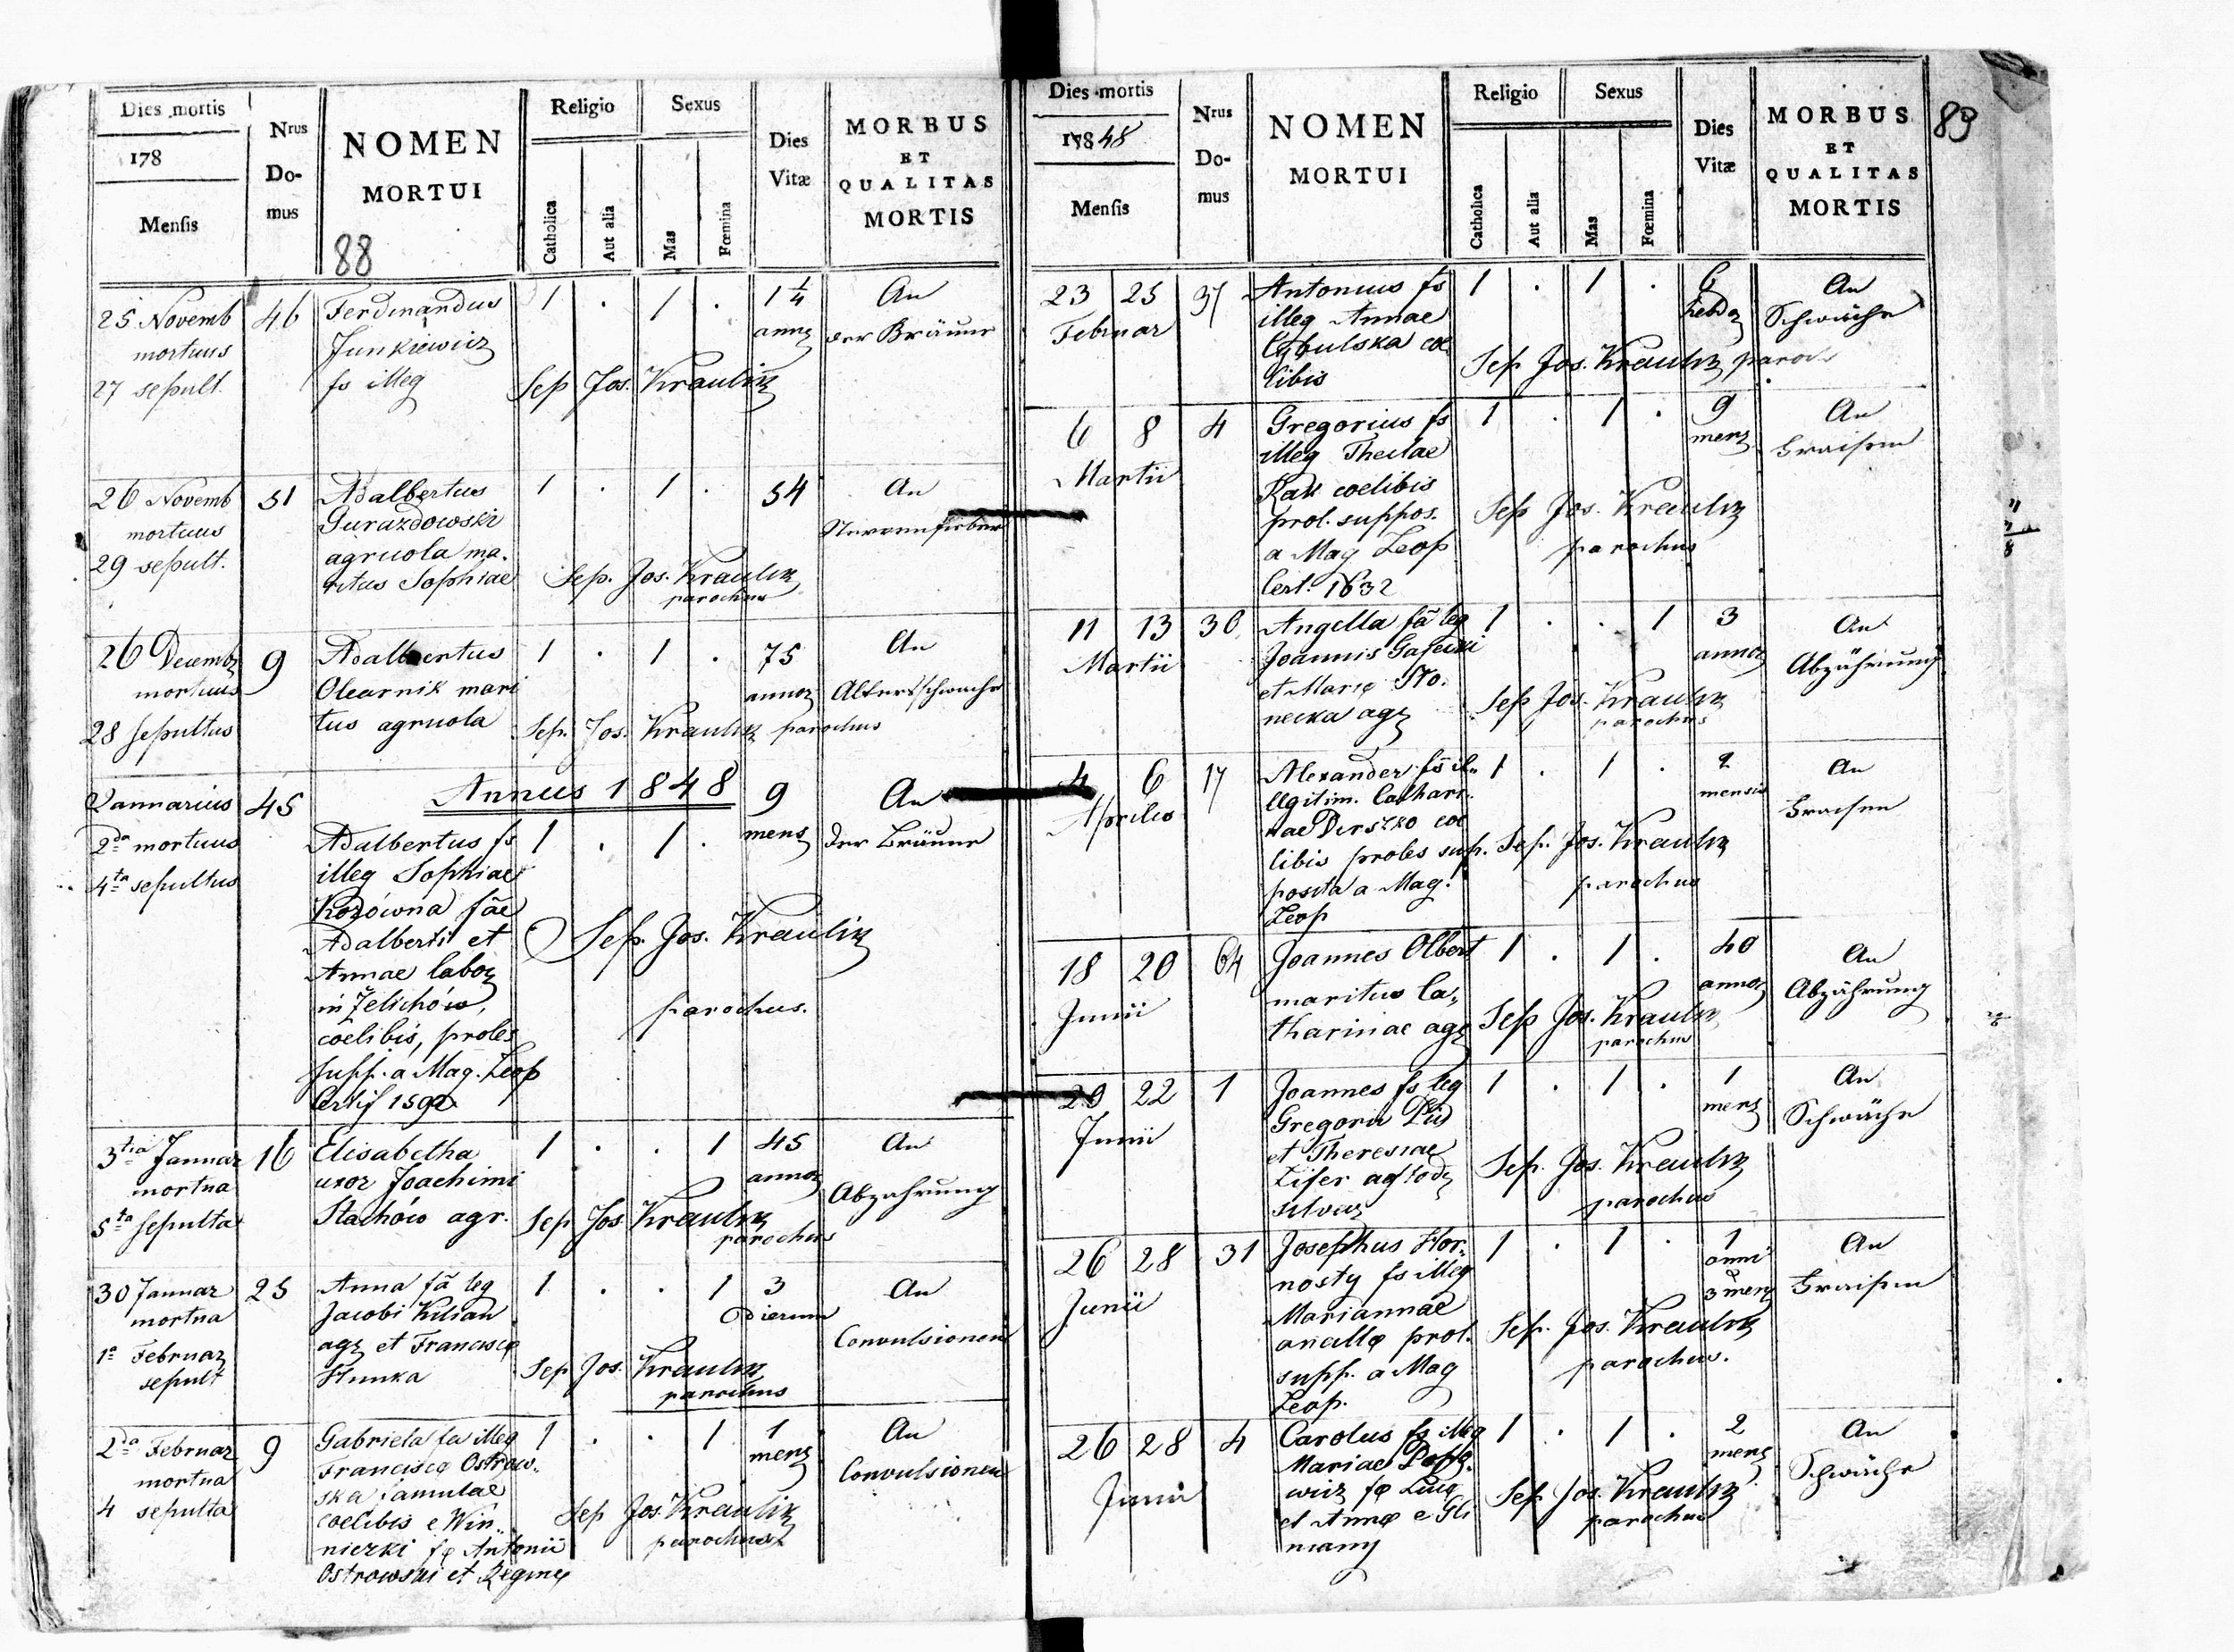 Dies mortis
178
Mensis
Nrus
Do-
mus
NOMEN
MORTUI
88
Religio
Catholica
Aut alia
Sexus
Mas
Fœmina
Dies
Vitæ
MORBUS
ET
QUALITAS
MORTIS
25 Novemb
mortuus
27 sepult.
46
Ferdinandus
Junkiewicz
fs illeg
1 . 1 .
1 1/4
annz
An
der Bräune
Sep Jos. Kraulik
26 Novemb
mortuus
29 sepult.
51
Adalbertus
Gurazdowski
agricola ma.
ritus Sophiae
1 . 1 .
54
An
Nervenfieber
Sep. Jos. Kraulik
parochus
26 Decembz
mortuus
28 sepultus
9
Adalbertus
Olearnik mari
tus agricola
1 . 1 .
75
annoz
An
Altersschwache
Sep. Jos. Kraulik parochus
Annus 1848
Januarius
2da mortuus
4ta sepultus
45
Adalbertus fs
illeg Sophiae
Kozówna fae
Adalberti et
Annae laboz
in Żelichów,
coelibis, proles
supp. a Mag. Leop
Certif 1592
1 . 1 .
9
mens
An
der Bräune
Sep. Jos. Kraulik
parochus.
3tia Januar
mortua
5ta sepulta
16
Elisabetha
uxor Joachimi
Stachów agr.
1 . . 1
45
annoz
An
Abzahrung
Sep Jos Kraulik
parochus
30 Januar
mortua
1a Februaz
sepult
25
Anna fa leg
Jacobi Kilian
agz et Francisce
Hunka
1 . . 1
3
dierum
An
Convulsionen
Sep Jos. Kraulik
parochus
2da Februar
mortua
4 sepulta
9
Gabriela fa illeg
Francisca Ostrow-
ska famulae
coelibis e Win-
niczki fe Antonii
Ostrowski et Regine
1 . . 1
1
menz
An
Convulsionen
Sep Jos Kraulik
parochus
Dies mortis
1848
Mensis
Nrus
Do-
mus
NOMEN
MORTUI
Religio
Catholica
Aut alia
Sexus
Mas
Fœmina
Dies
Vitæ
MORBUS
ET
QUALITAS
MORTIS
89
23 25
Februar
37
Antonius fs
illeg Annae
Cybulska coe
libis
1 . 1 .
6
hebdz
An
Schwäche
Sep Jos. Kraulik paroch
6 8
Martii
4
Gregorius fs
illeg Theclae
coelibis
prol. suppos.
a Mag Leop
Cert. 1632
1 . 1 .
9
menz
An
Fraisen
Sep Jos. Kraulik
parochus
11 13
Martii
30
Angella fa leg
Joannis
et Marie Sto-
necka agz
1 . . 1
3
annoz
An
Abzährung
Sep Jos. Kraulik
parochus
4 6
Aprilis
17
Alexander fs il-
legitim. Cathari-
nae Derszko coe
libis proles sup.
posita a Mag.
Leop
1 . 1 .
2
mensis
An
Fraisen
Sep. Jos. Kraulik
parochus
18 20
Junii
64
Joannes Olbert
maritus Ca-
tharinae agz
1 . 1 .
40
annoz
An
Abzährung
Sep Jos. Kraulik
parochus
20 22
Junii
1
Joannes fs leg
Gregorii
et Theresiae
silvaz
1 . 1 .
1
menz
An
Schwäche
Sep. Jos. Kraulik
parochus
26 28
Junii
31
Josephus Hor-
nosty fs illeg
Mariannae
ancille prol.
supp. a Mag
Leop.
1 . 1 .
1
anni
3 menz
An
Fraisen
Sep. Jos. Kraulik
parochus.
26 28
Junii
4
Carolus fs illeg
Mariae
wicz fe Luce
et Anne e Gli
niany
1 . 1 .
2
menz
An
Schwäche
Sep Jos. Kraulik
parochus